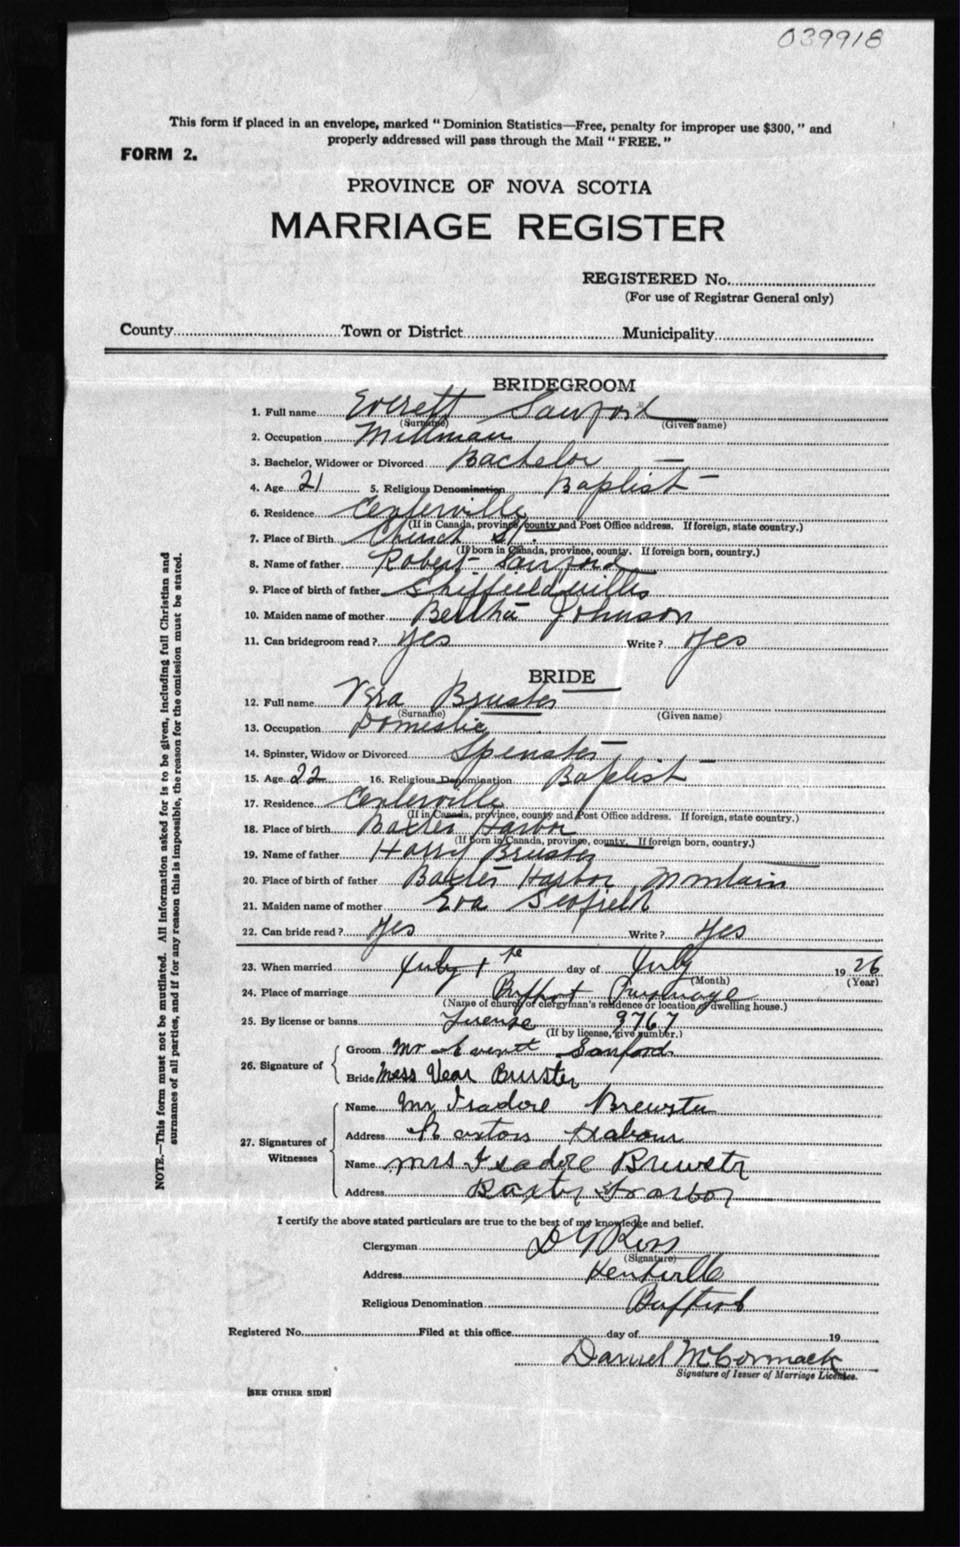 039918
This form if placed in an envelope, marked " Dominion Statistics—Free, penalty for improper use $300, " and
properly addressed will pass through the Mail " FREE. "
FORM 2.
PROVINCE OF NOVA SCOTIA
MARRIAGE REGISTER
REGISTERED No.
(For use of Registrar General only)
County Town or District Municipality
BRIDEGROOM
1. Full name Everett Sanford
(Surname) (Given name)
2. Occupation Millman
3. Bachelor, Widower or Divorced Bachelor —
4. Age 21 5. Religious Denomination Baptist —
6. Residence Centerville
(If in Canada, province, county and Post Office address. If foreign, state country.)
7. Place of Birth Church St.
(If born in Canada, province, county. If foreign born, country.)
8. Name of father Robert Sanford
9. Place of birth of father Sheffield Mills
10. Maiden name of mother Bertha Johnson
11. Can bridegroom read? Yes Write? Yes
BRIDE
12. Full name Vera Bruster
(Surname) (Given name)
13. Occupation Domestic
14. Spinster, Widow or Divorced Spenster —
15. Age 22 16. Religious Denomination Baptist —
17. Residence Centerville
(If in Canada, province, county and Post Office address. If foreign, state country.)
18. Place of birth Baxter Harbor
(If born in Canada, province, county. If foreign born, country.)
19. Name of father Harry Bruster
20. Place of birth of father Baxter Harbor Mountain
21. Maiden name of mother Eva Scofield
22. Can bride read? Yes Write? Yes
23. When married July 1 day of July 1926
(Month) (Year)
24. Place of marriage Parsonage
(Name of church or clergyman's residence or location of dwelling house.)
25. By license or banns License 9767
(If by license, give number.)
26. Signature of
Groom Mr Everett Sanford
Bride Mess Vear Burster
27. Signatures of Witnesses
Name Mr Isadore Brewster
Address Harbour
Name Mrs. Isadore Brewstr
Address Baxter Harbor
I certify the above stated particulars are true to the best of my knowledge and belief.
Clergyman Ross
(Signature)
Address Kentville
Religious Denomination Baptist
Registered No. Filed at this office day of 19
Daniel McCormack
Signature of Issuer of Marriage Licenses.
[SEE OTHER SIDE]
NOTE.—This form must not be mutilated. All information asked for is to be given, including full Christian and
surnames of all parties, and if for any reason this is impossible, the reason for the omission must be stated.